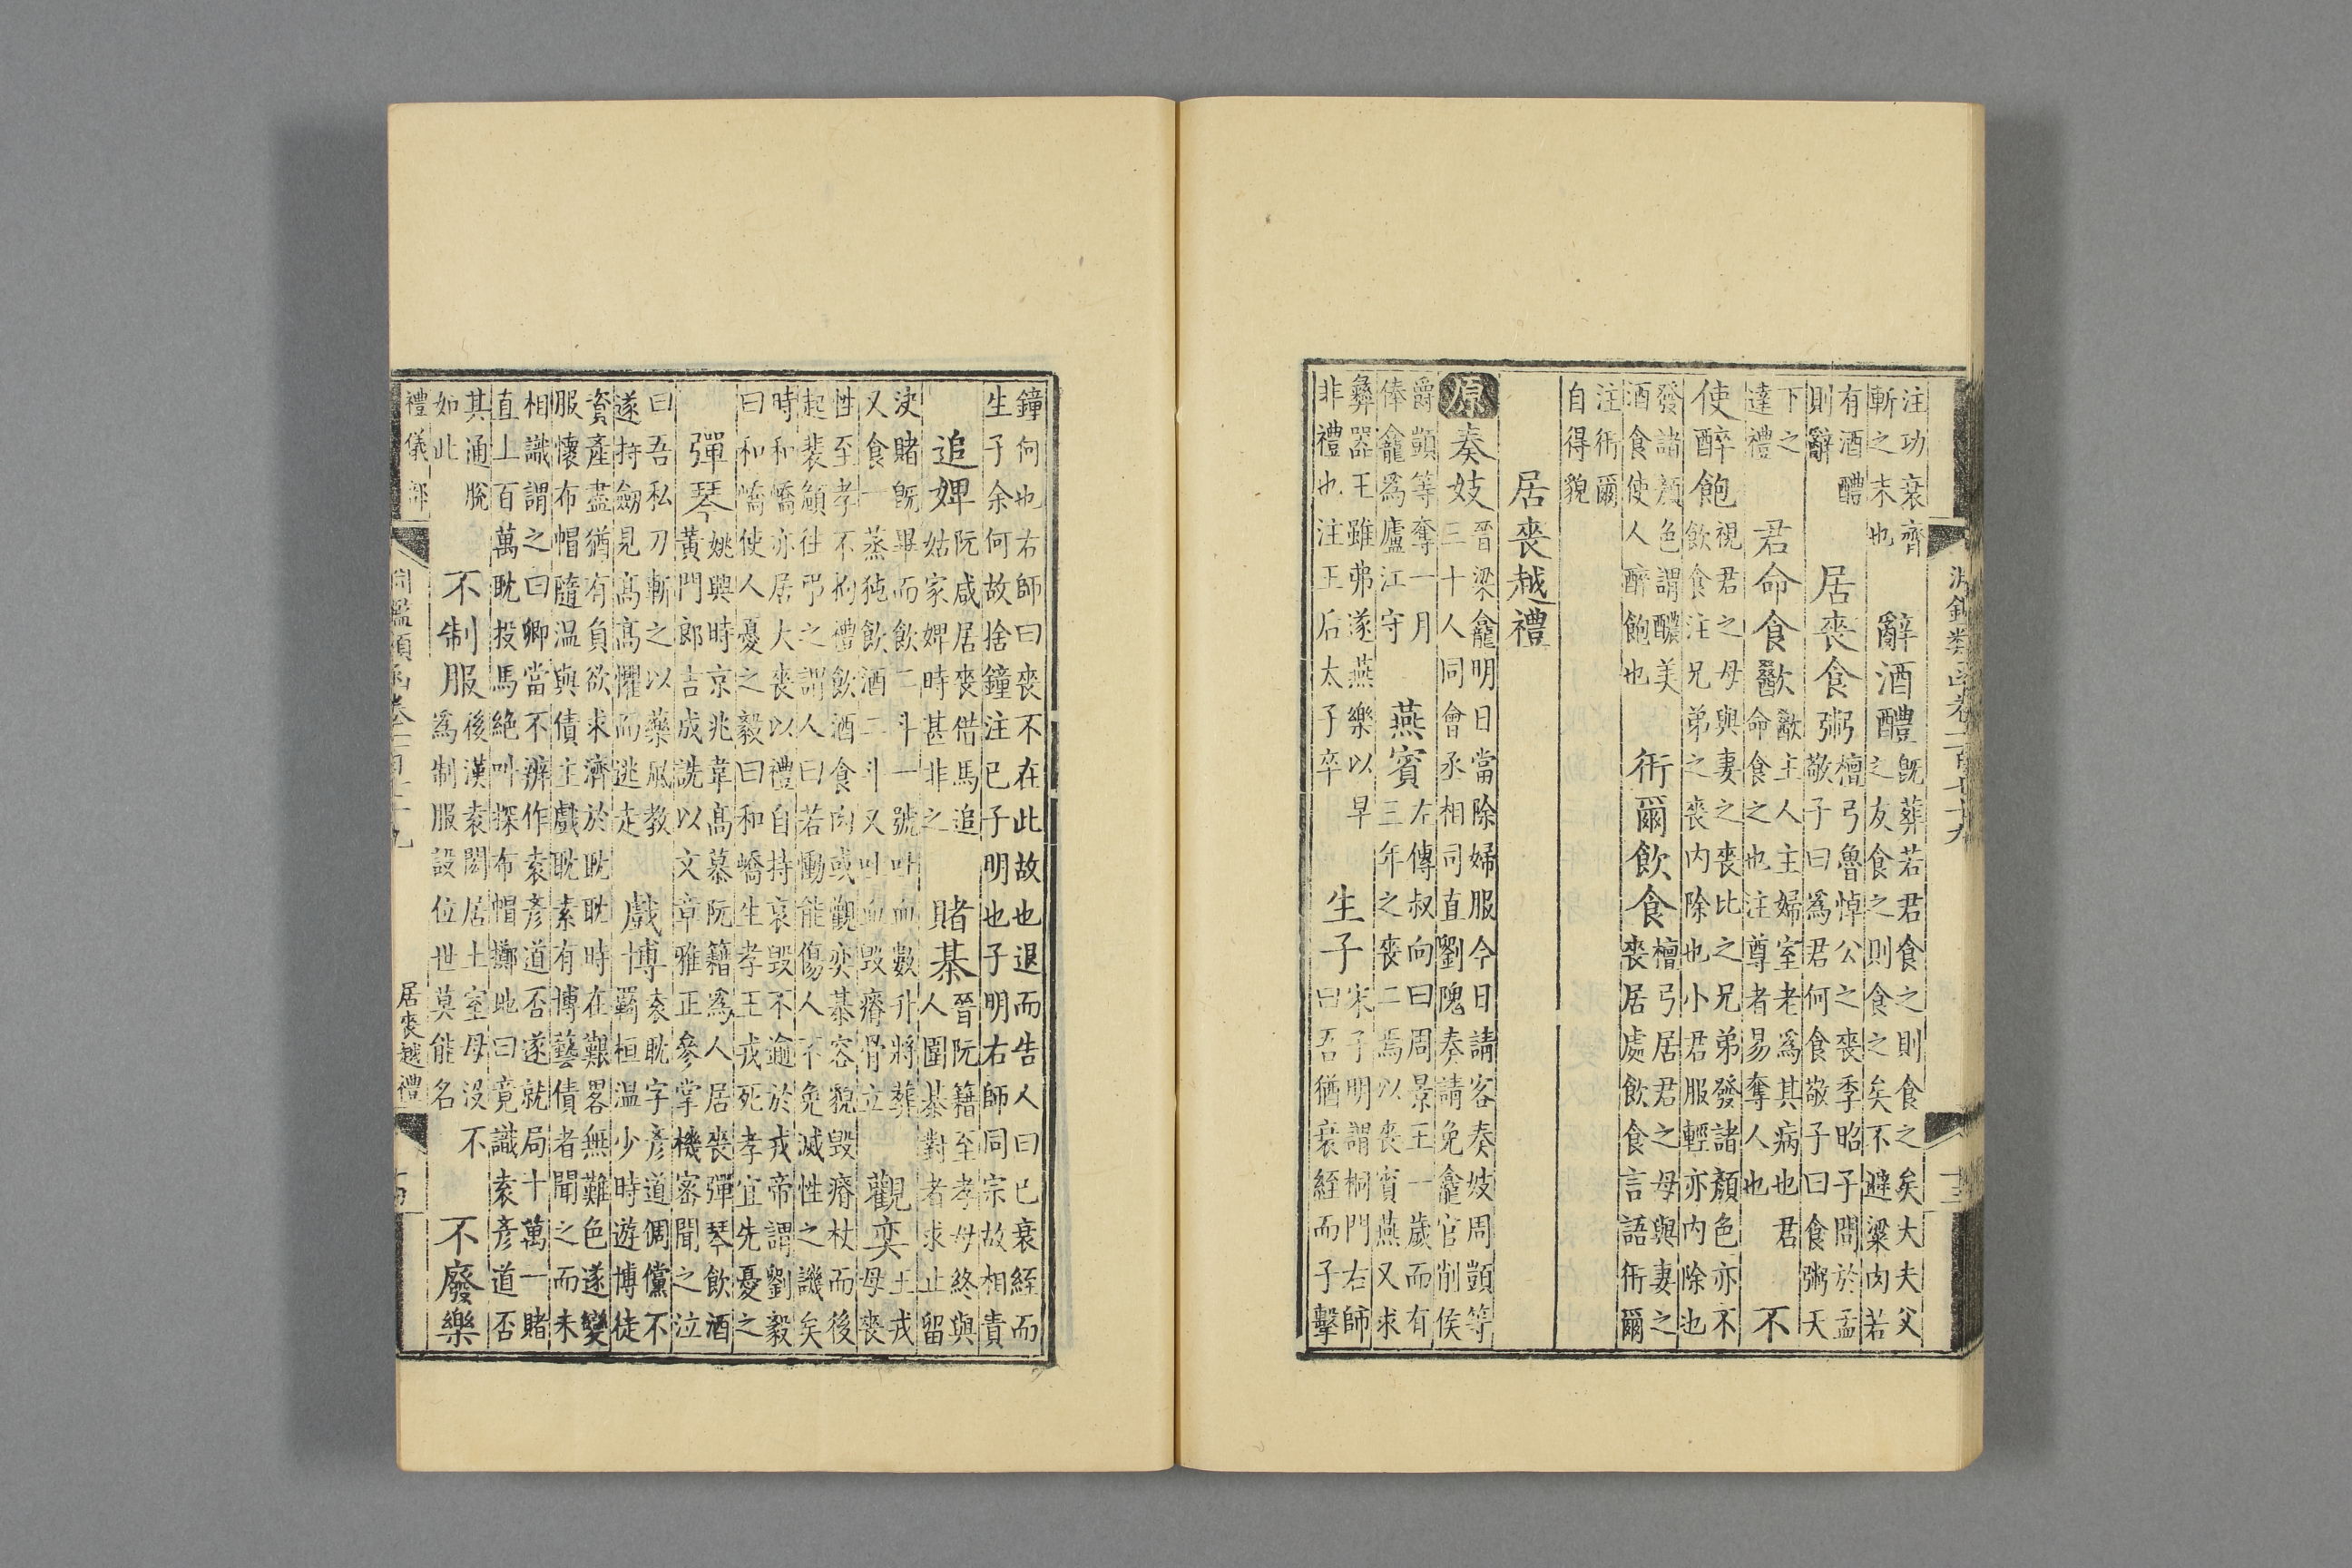 淵鑑類函卷一百七十九
注功衰齊
斬之末也
辭酒醴
既葬若君食之則食之矣大夫父
之友食之則食之矣不避粱肉若
有酒醴
則辭
居喪食粥
檀弓魯悼公之喪季昭子問於孟
敬子曰為君何食敬子曰食粥天
下之
達禮
君命食歠
歠主人主婦室老為其病也君
命食之也注尊者易奪人也
不
使醉飽
視君之母與妻之喪比之兄弟發諸顏色亦不
飲食注兄弟之喪内除也小君服輕亦内除也
發諸顏色謂醲美
酒食使人醉飽也
衎爾飲食
檀弓居君之母與妻之
喪居處飲食言語衎爾
注衎爾
自得貌
居喪越禮
原
奏妓
晉梁龕明日當除婦服今日請客奏妓周顗等
三十人同會丞相司直劉隗奏請免龕官削侯
爵顗等奪一月
俸龕為廬江守
燕賓
左傳叔向曰周景王一歲而有
三年之喪二焉以喪賓燕又求
彝器王雖弗遂燕樂以早
非禮也注王后太子卒
生子
宋子明謂桐門右師
曰吾猶衰絰而子擊
鐘何也右師曰喪不在此故也退而告人曰已衰絰而
生子余何故捨鐘注已子明也子明右師同宗故相責
追婢
阮咸居喪借馬追
姑家婢時甚非之
賭棊
晉阮籍至孝母終與
人圍棊對者求止留
決賭既畢而飲二斗一號吐血數升將葬
又食一蒸㹠飲酒二斗又吐血毀瘠骨立
觀奕
王戎
母喪
性至孝不拘禮飲酒食肉或觀奕棊容貌毀瘠杖而後
起裴頠往弔之謂人曰若慟能傷人不免滅性之譏矣
時和嶠亦居大喪以禮自持哀毀不逾於戎帝謂劉毅
曰和嶠使人憂之毅曰和嶠生孝王戎死孝宜先憂之
彈琴
姚興時京兆韋高慕阮籍為人居喪彈琴飲酒
黃門郎古成詵以文章雅正參掌機密聞之泣
曰吾私刀斬之以藥風教
遂持劒見高高懼而逃走
戲博
袁耽字彥道倜儻不
羈桓温少時遊博徒
資產盡猶有負欲求濟於耽耽時在艱畧無難色遂變
服懷布帽隨温與債主戲耽素有博藝債者聞之而未
相識謂之曰卿當不辦作袁彥道否遂就局十萬一賭
直上百萬耽投馬絕叫探布帽擲地曰竟識袁彥道否
其通脫
如此
不制服
後漢袁閎居土室母沒不
為制服設位世莫能名
不廢樂
禮儀部
淵鑑類函卷一百七十九
居喪越禮
十四